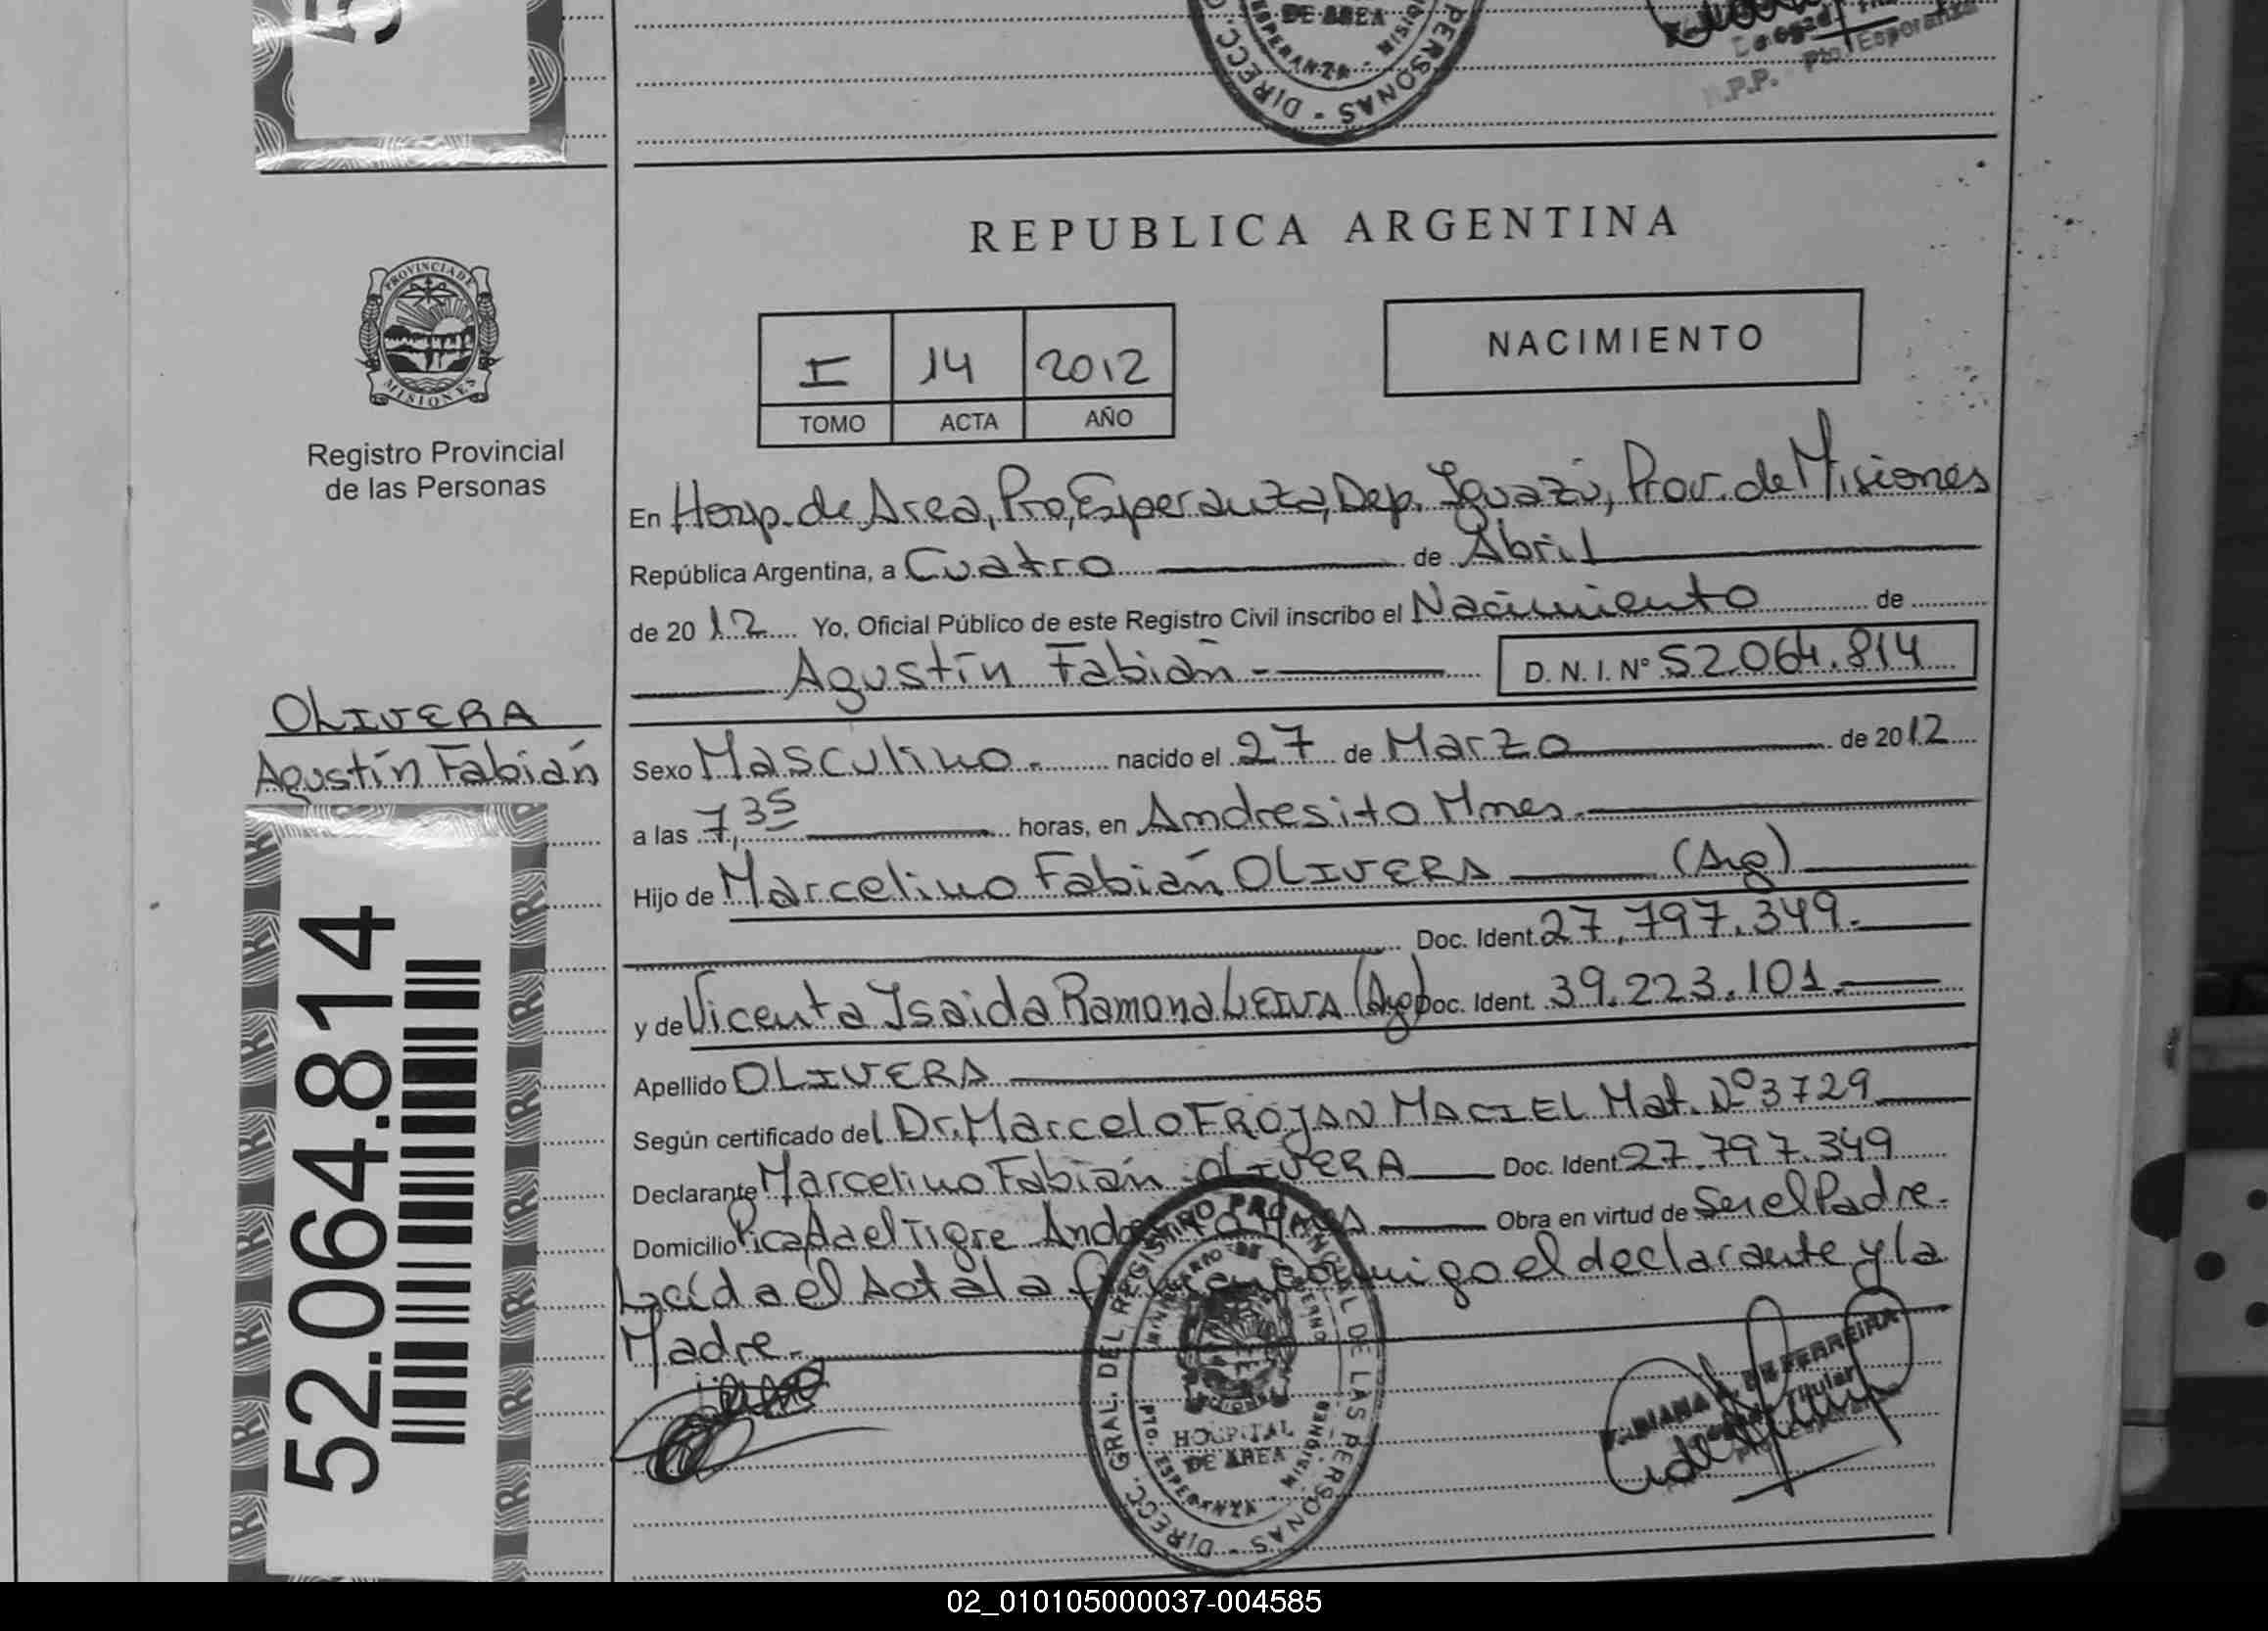 DE AREA
ESPERANZA - MISIO
DIRECC
PERSONAS -
Pto. Esperanza
REPUBLICA ARGENTINA
PROVINCIA DE
MISIONES
Registro Provincial
de las Personas
I 14 2012
TOMO ACTA AÑO
NACIMIENTO
En Hosp. de Area, Pto, Esperanza, Dep. Iguazú, Prov. de Misiones
República Argentina, a Cuatro de Abril
de 2012 Yo, Oficial Público de este Registro Civil inscribo el Nacimiento de
Agustín Fabián - D. N. I. Nº 52.064.814
OLIVERA
Agustín Fabián
Sexo Masculino.- nacido el 27 de Marzo de 2012
a las 7,35 horas, en Andresito Mnes.
Hijo de Marcelino Fabián OLIVERA (Arg)
Doc. Ident. 27.797.349.-
y de Vicenta Isaida Ramona LEIVA (Arg) Doc. Ident. 39.223.101.-
Apellido OLIVERA
Según certificado del Dr. Marcelo FROJAN MACIEL Mat. Nº 3729
Declarante Marcelino Fabián OLIVERA Doc. Ident. 27.797.349
Domicilio Picada el Tigre Obra en virtud de Ser el Padre.
Leída el Acta la conmigo el declarante y la
Madre.-
52.064.814
DIRECC. GRAL. DEL REGISTRO PROVINCIAL DE LAS PERSONAS -
MINISTERIO DE GOBIERNO
HOSPITAL
DE AREA
PTO. ESPERANZA - MISIONES
DE FERREIRA
Titular
02_010105000037-004585